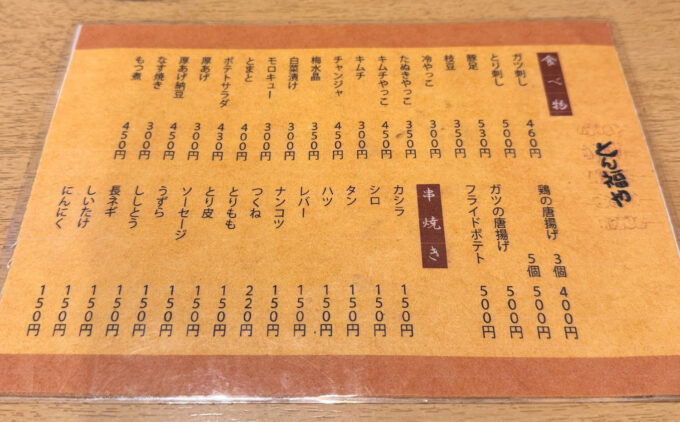 とん福や
食べ物
ガツ刺し 460円
とり刺し 500円
豚足 530円
枝豆 350円
冷やっこ 300円
たぬきやっこ 350円
キムチやっこ 450円
キムチ 350円
チャンジャ 450円
梅水晶 350円
白菜漬け 300円
モロキュー 300円
とまと 400円
ポテトサラダ 430円
厚あげ 300円
厚あげ納豆 450円
なす焼き 300円
もつ煮 450円
鶏の唐揚げ 3個 400円
5個 500円
ガツの唐揚げ 500円
フライドポテト 500円
串焼き
カシラ 150円
シロ 150円
タン 150円
ハツ 150円
レバー 150円
ナンコツ 150円
つくね 220円
とりもも 150円
とり皮 150円
ソーセージ 150円
うずら 150円
ししとう 150円
長ネギ 150円
しいたけ 150円
にんにく 150円